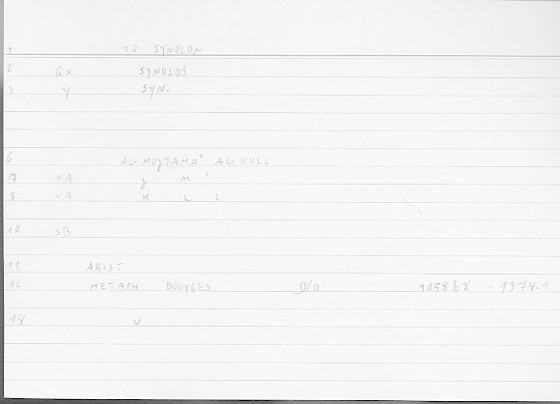 1 TO SYNOLON
2 GX SYNOLOS
3 Y SYN-
6 AL-MUJTAMAʿ AL-KULL
7 NA J M ʿ
8 NA K L L
10 SB
11 ARIST
12 METAPH BOUYGES D/0 105868 - 1374.1
14 U